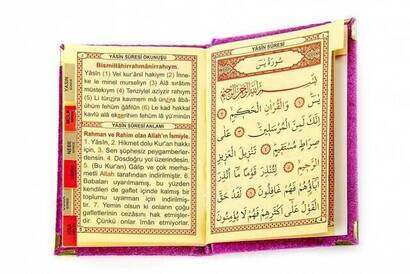 YÂSÎN SÛRESİ OKUNUŞU
Bismillâhirrahmânirrahıym.
Yâsîn (1) Vel kur'ânil hakiym (2) İnne-
ke le minel murseliyn (3) Alâ sırâtım
müstekıym (4) Tenziylel aziyzir rahıym
(5) Li tünzira kavmem mâ ünzira âbâ-
ühüm fehüm ğâfilûn (6) Le kad hakkal
kavlü alâ ekserihim fehüm lâ yü'minûn
YÂSÎN SÛRESİ ANLAMI
Rahman ve Rahim olan Allah'ın İsmiyle.
1. Yâsîn, 2. Hikmet dolu Kur'an hakkı
için, 3. Sen şüphesiz peygamberler-
densin. 4. Dosdoğru yol üzerindesin.
5. (Bu Kur'an) Gâlip ve çok merha-
metli Allah tarafından indirilmiştir. 6.
Babaları uyarılmamış, bu yüzden
kendileri de gaflet içinde kalmış bir
toplumu uyarman için indirilmiştir.
7. Yemin olsun ki onların çoğu
gafletlerinin cezasını hak etmişler-
dir. Çünkü onlar îman etmiyorlar.
YÂSÎN
NEBE
YÂSÎN SÛRESİ
سُورَةُ يٰسٓ
بِسْمِ اللّٰهِ الرَّحْمٰنِ الرَّحِيمِ
يٰسٓ ① وَالْقُرْاٰنِ الْحَكِيمِ ②
اِنَّكَ لَمِنَ الْمُرْسَلِينَ ③ عَلٰى
صِرَاطٍ مُسْتَقِيمٍ ④ تَنْزِيلَ الْعَزِيزِ
الرَّحِيمِ ⑤ لِتُنْذِرَ قَوْمًا مَٓا اُنْذِرَ
اٰبَٓاؤُهُمْ فَهُمْ غَافِلُونَ ⑥ لَقَدْ حَقَّ
الْقَوْلُ عَلٰٓى اَكْثَرِهِمْ فَهُمْ لَا يُؤْمِنُونَ